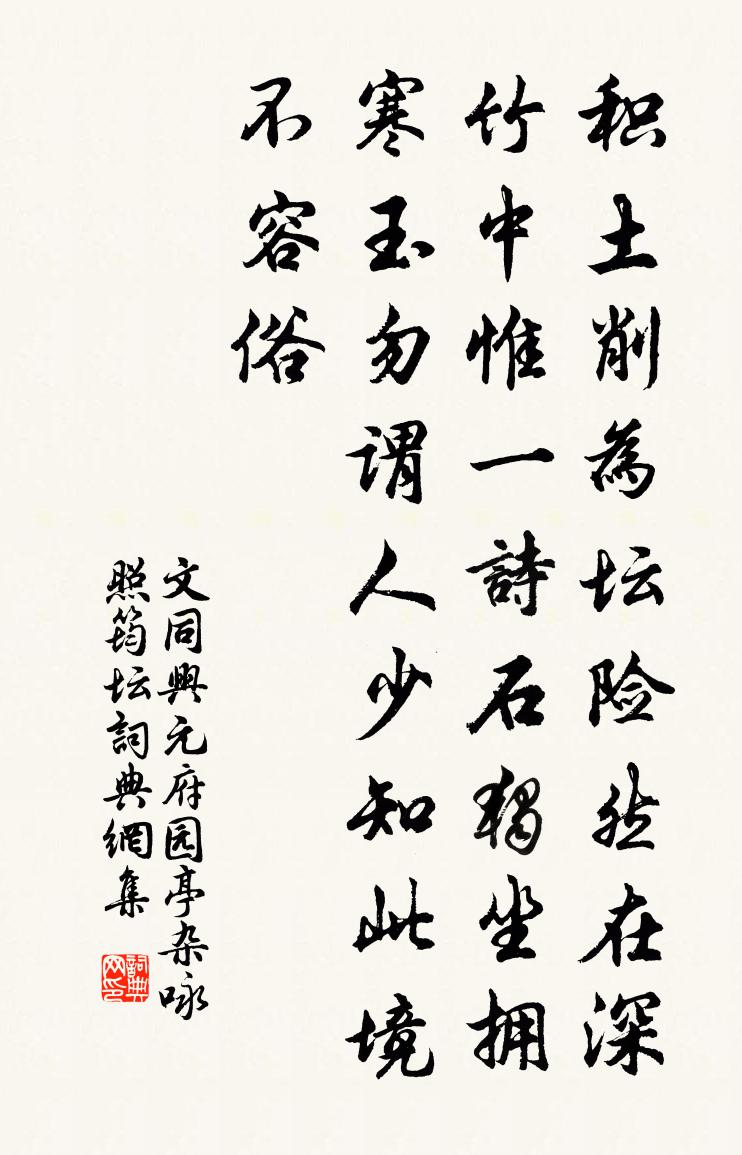 积土削為坛险然在深
竹中惟一詩石獨坐拥
寒玉勿謂人少知此境
不容俗
文同興元府园亭杂咏
照筠坛詞典網集
詞典网印